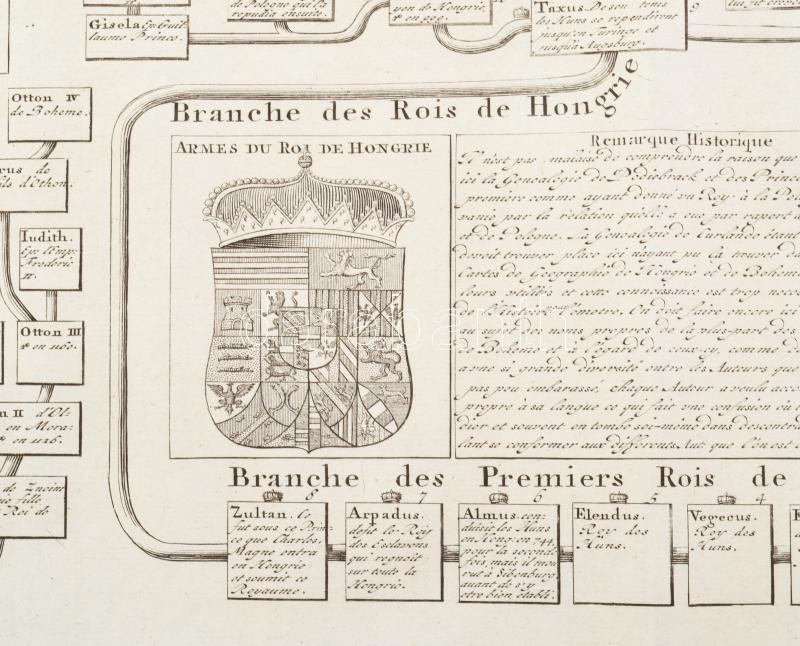 Gisela Ep. Guil-
laume Prince.
de Pologne qui la
repudia ensuite.
yon de Hongrie,
en 999.
Taxus De son tems
les Huns se rependirent
jusqu'en Turinge et
jusqu'a Augsburg.
9
Branche des Rois de Hongrie
Otton IV
de Boheme.
rus de
fils d'Othon.
Iudith.
Ep. l'Emp.
Frederic
II.
Otton III
en 1160.
n II d'Ol-
en Mora-
en 1126.
de Znoim
fille
Roi de
ARMES DU ROI DE HONGRIE
Remarque Historique
Il n'est pas malaisé de comprendre la raison que
ici la Genealogie de Podiebrack et des Prince
premiere comme ayant donné un Roy à la Pol
vanie par la relation quelle a eue par raport à
et de Pologne. La Genealogie de Curlande étant
devoit trouver place ici n'ayant pu la trouver da
Cartes de Geographie de Hongrie et de Boheme
leurs utilités et cette connoissance est trop nece
de l'Histoire l'omettre. On doit faire encore ici
au sujet des noms propres de la plus-part des
de Boheme et à l'egard de ceux-cy, comme de
a une si grande diversité entre les Auteurs que
pas peu embarassé, chaque Auteur a voulu acco
propre à sa langue ce qui fait une confusion
dier et souvent on tombe soi-même dans des contra
lant se conformer aux differents Aut: que l'on est
Branche des Premiers Rois de
8
7
6
5
4
Zultan. Ce
fut sous ce Prin-
ce que Charles
Magne entra
en Hongrie
et soumit ce
Royaume.
Arpadus.
defit le Roy
des Esclavons
qui regnoit
sur toute la
Hongrie.
Almus. con-
duisit les Huns
en Hong. en 744.
pour la seconde
fois, mais il mou
rut à Sibenburg
avant de s'y
etre bien établi.
Elendus.
Roy des
Huns.
Vegecus.
Roy des
Huns.